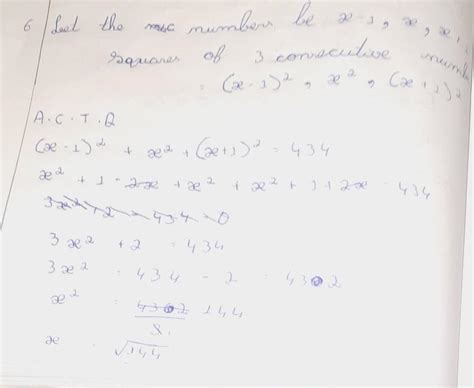 6 Let the numbers be x-1, x, x
squares of 3 consecutive numb
= (x-1)², x², (x+1)²
A.C.T.Q
(x-1)² + x² + (x+1)² = 434
x² + 1 - 2x + x² + x² + 1 + 2x = 434
3x² + 2 - 434 = 0
3x² + 2 = 434
3x² = 434 - 2 = 432
x² = 432 144
3
x = √144